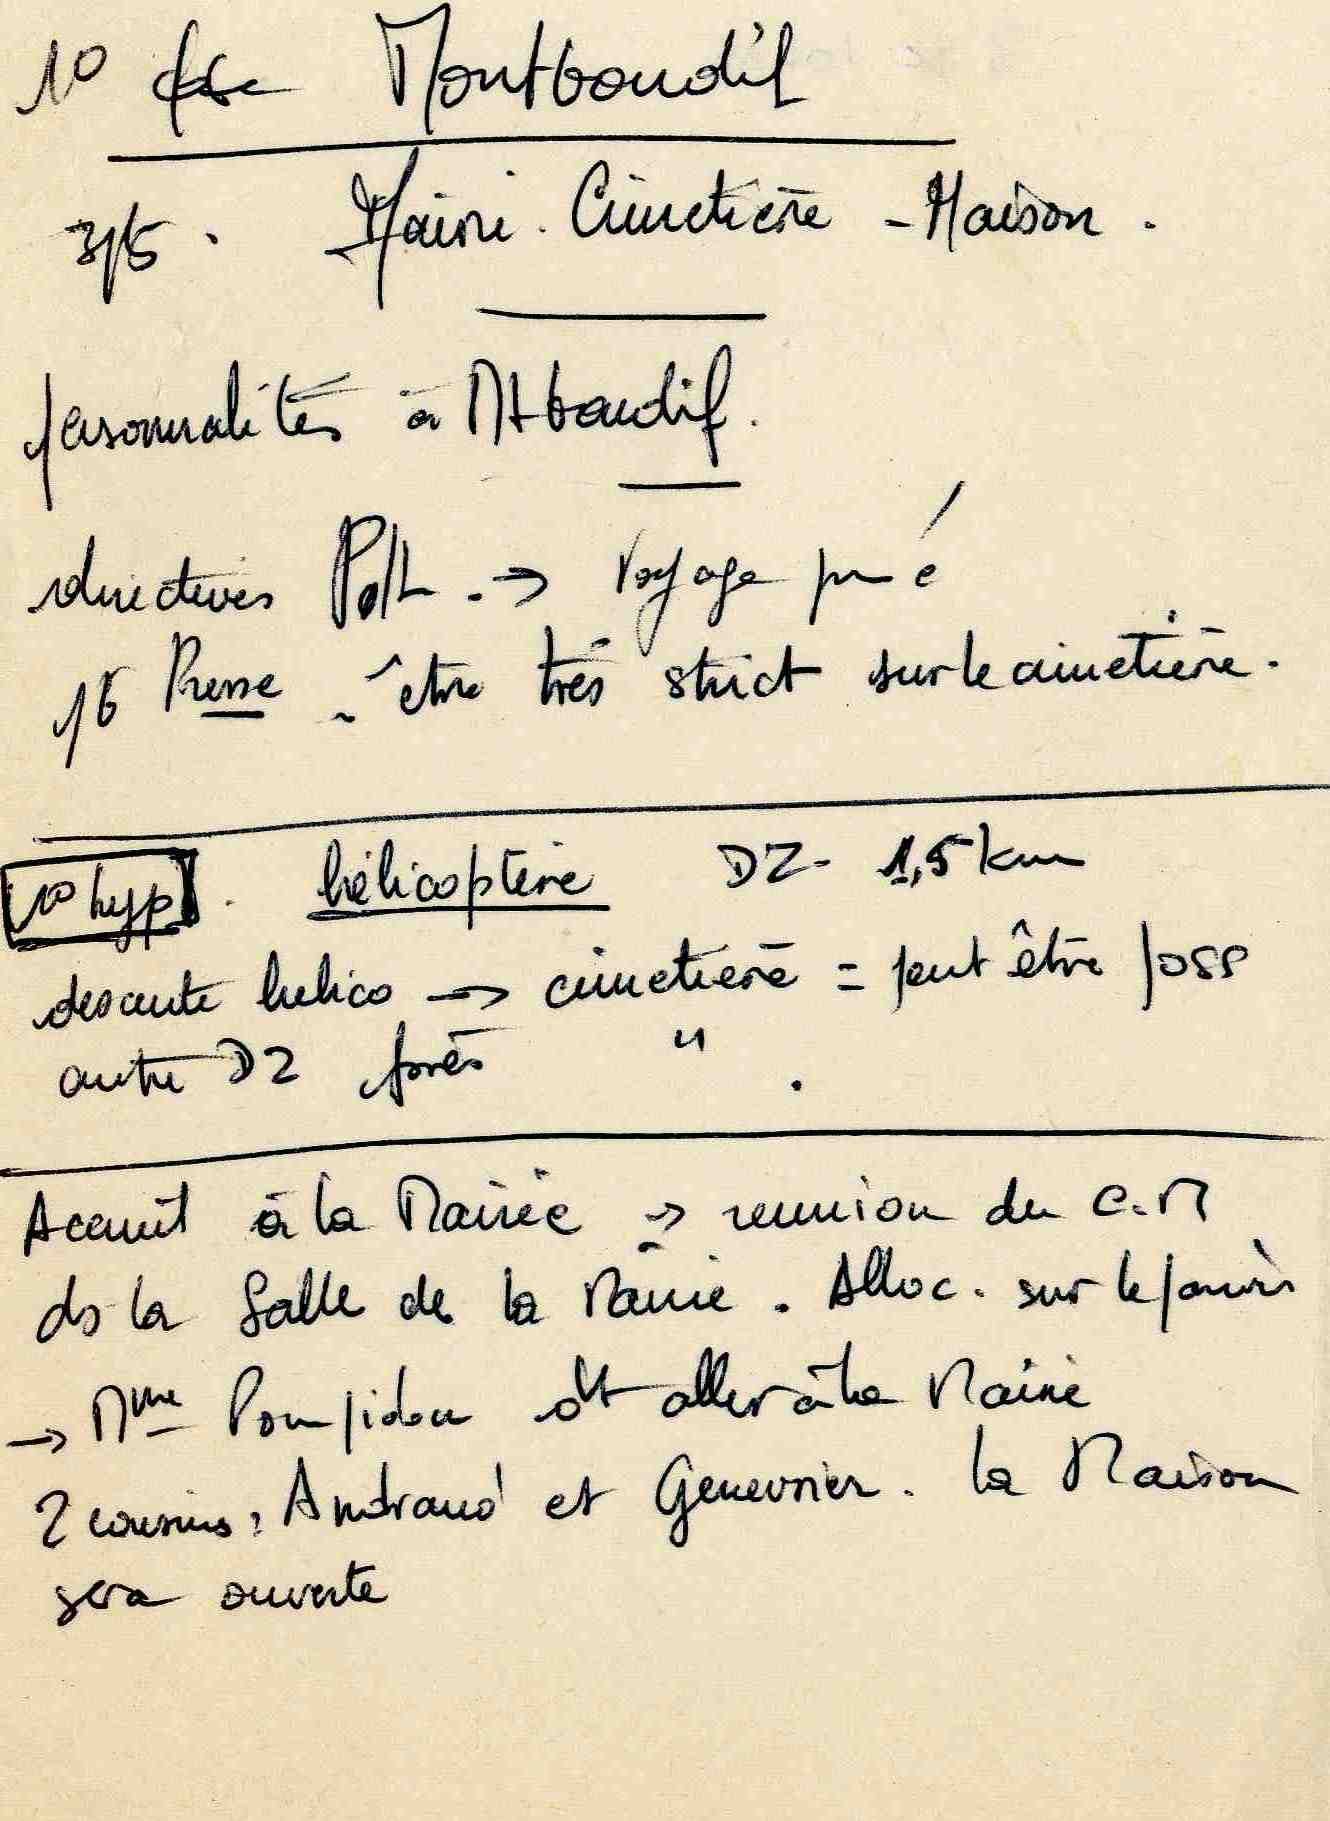 1° Montboudif
Mairie. Cimetière - Maison.
personnalités à Mtboudif.
directives → Voyage privé
Presse - être très strict sur le cimetière.
1° hyp. hélicoptère DZ - 1,5 km
descente hélico → cimetière = peut être poss
autre DZ près "
Accueil à la Mairie → reunion du C.M
ds la Salle de la Mairie. Alloc. sur le parvis
→ Mme Pompidou dt aller à la Mairie
2 cousins, Andraud et Genevrier. la Maison
sera ouverte